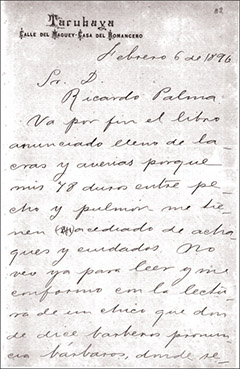 82
Tacubaya
CALLE DEL MAGUEY-CASA DEL ROMANCERO
Febrero 6 de 1896
Sr. D.
Ricardo Palma
Va por fin el libro
anunciado lleno de la
cras y averias porque
mis 78 duros entre pe
cho y pulmon me tie
nen acediado de acha
ques y cuidados. No
veo ya para leer y me
conformo con la lectu
ra de un chico que don
de dice barberos pronun
cia bárbaros, donde se-